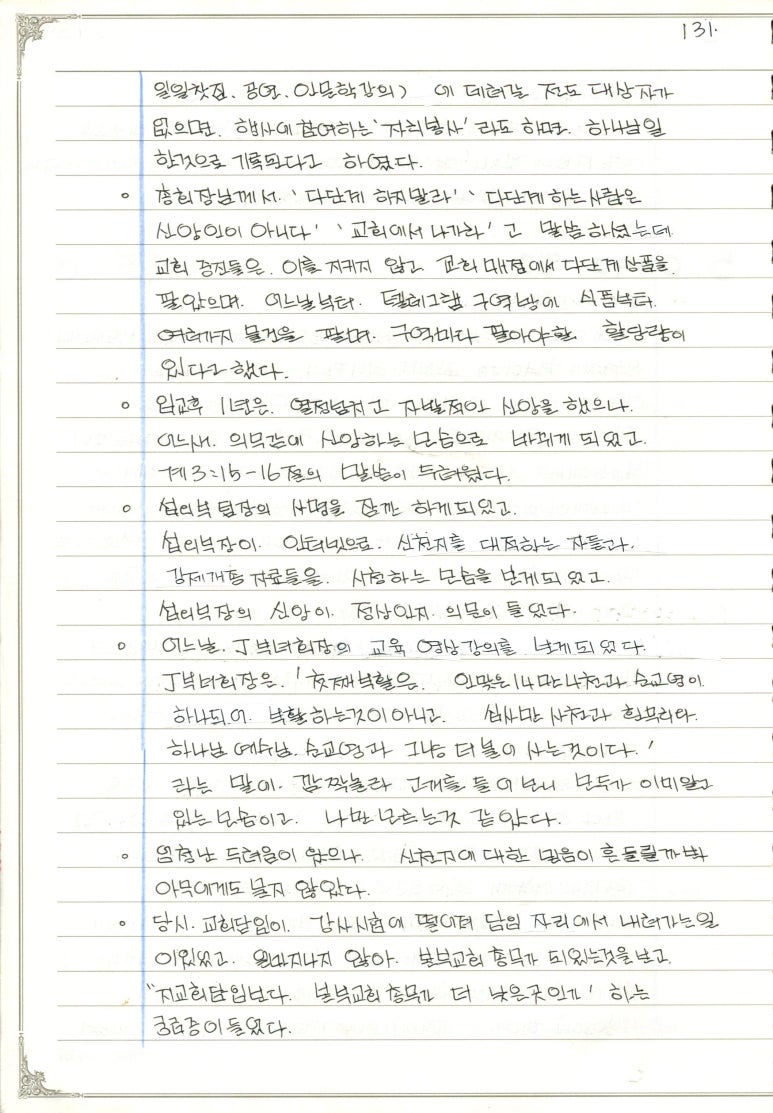 131.
일일찻집. 공연. 인문학강의) 에 데려갈 전도 대상자가
없으면. 행사에 참여하는 '자리봉사' 라도 하면. 하나님 일
한것으로 기록된다고 하였다.
o 총회장님께서. '다단계 하지말라' '다단계 하는 사람은
신앙인이 아니다' '교회에서 나가라' 고 말씀 하셨는데
교회 중진들은. 이를 지키지 않고 교회 매점에서 다단계 상품을
팔았으며. 어느날부터. 텔레그램 구역방에 식품부터.
여러가지 물건을 팔며. 구역마다 팔아야할 할당량이
있다고 했다.
o 입교후 11년은. 열정넘치고 자발적인 신앙을 했으나.
어느새. 의무감에 신앙하는 모습으로 바뀌게 되었고.
계3:15-16절의 말씀이 두려웠다.
o 섭외부 팀장의 사명을 잠깐 하게되었고.
섭외부장이. 인터넷으로. 신천지를 대적하는 자들과.
강제개종 자료들을. 시청하는 모습을 보게되었고.
섭외부장의 신앙이. 정상인지. 의문이 들었다.
o 어느날. J부녀회장의 교육 영상강의를 보게되었다.
J부녀회장은. '첫째부활은. 인맞은 14만4천과 순교영이
하나되어. 부활하는것이 아니고. 십사만 사천과 흰무리가.
하나님 예수님. 순교영과 그냥 더불어 사는것이다.'
라는 말에. 깜짝놀라 고개를 들어보니 모두가 이미알고
있는 모습이고. 나만 모르는것 같았다.
o 엄청난 두려움이 왔으나. 신천지에 대한 믿음이 흔들릴까봐
아무에게도 묻지 않았다.
o 당시. 교회담임이. 감사시험에 떨어져 담임 자리에서 내려가는일
이있었고. 얼마지나지 않아. 본부교회 총무가 되있는것을 보고.
"지교회담임보다. 본부교회 총무가 더 낮은곳인가' 하는
궁금증이 들었다.